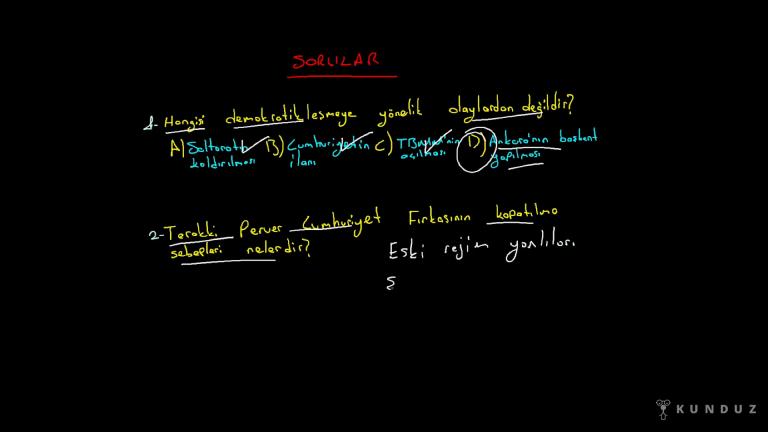 SORULAR
1- Hangisi demokratikleşmeye yönelik olaylardan değildir?
A) Saltanatın kaldırılması B) Cumhuriyetin ilanı C) TBMM'nin açılması D) Ankara'nın başkent yapılması
2- Terakki Perver Cumhuriyet Fırkasının kapatılma
sebepleri nelerdir?
Eski rejim yanlıları
S
KUNDUZ